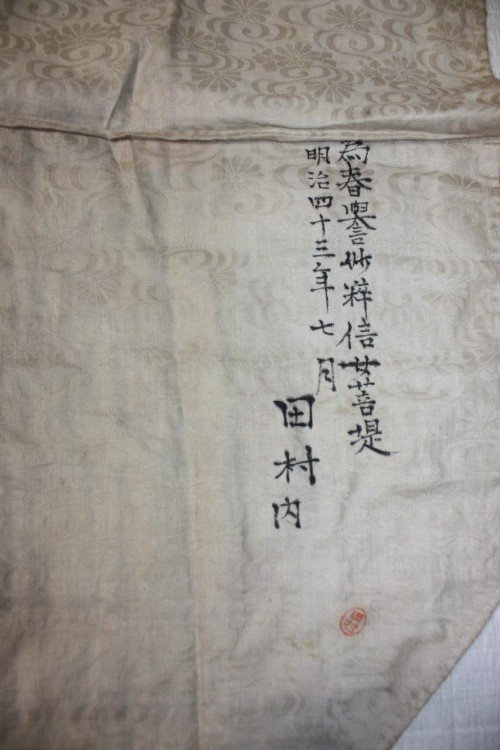 為春譽妙粹信女菩提
明治四十三年七月
田村内